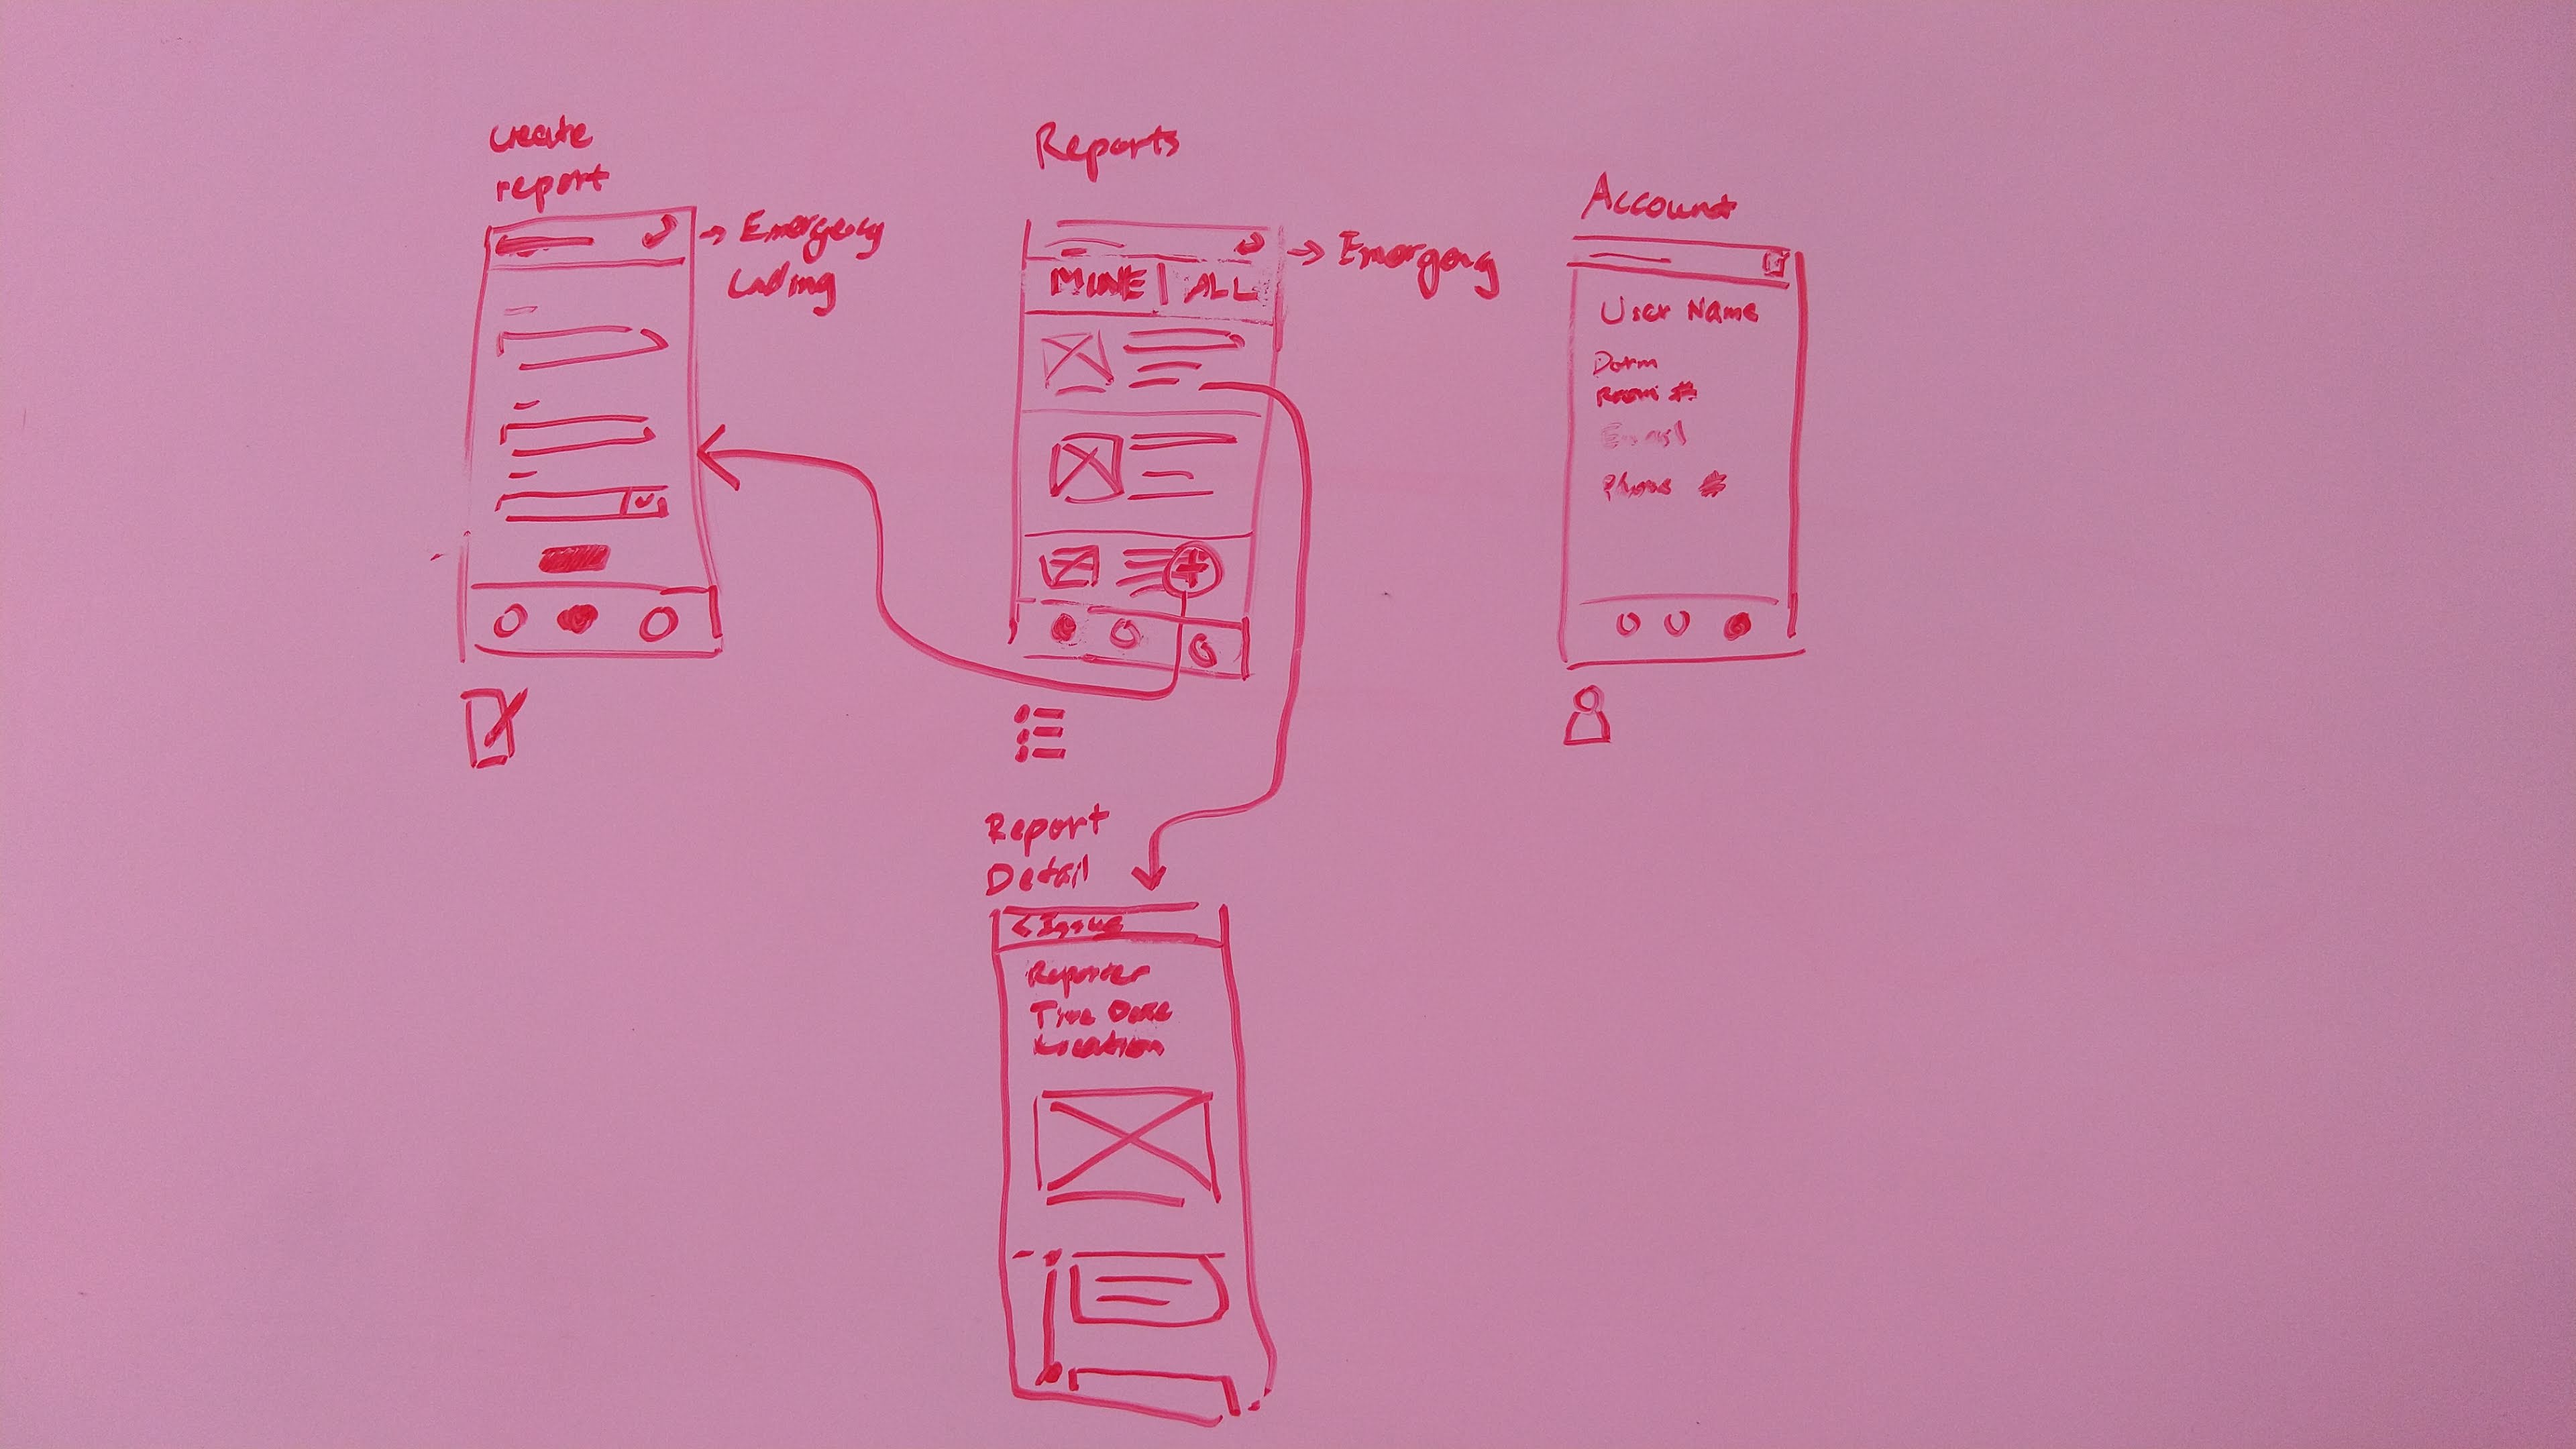 Create
report
→ Emergency
Reports
MINE | ALL
→ Emergency
Account
User Name
Dorm
Room #
Email
Phone #
Report
Detail
< Issue
Reporter
Time Date
Location